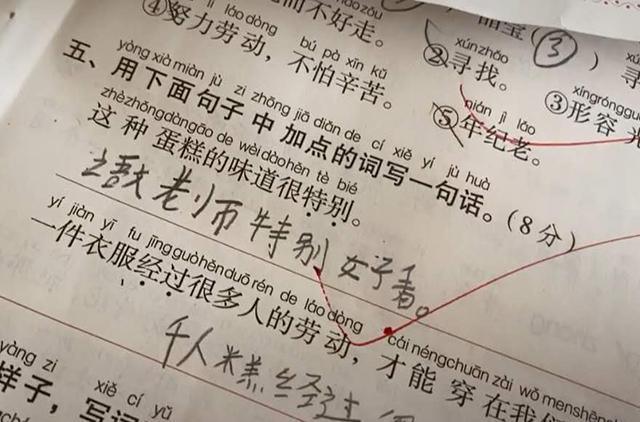 láo dòng bú pà xīn kǔ
④努力劳动，不怕辛苦。
③
xún zhǎo
②寻找。
nián jì lǎo
⑤年纪老。
③形容
yòng xià miàn jù zi zhōng jiā diǎn de cí xiě yí jù huà
五、用下面句子中加点的词写一句话。（8分）
zhè zhǒng dàn gāo de wèi dào hěn tè bié
这种蛋糕的味道很特别。
老师特别好看。
yí jiàn yī fu jīng guò hěn duō rén de láo dòng cái néng chuān zài wǒ men shēn
一件衣服经过很多人的劳动，才能穿在我们
千人糕经过
yàng zi xiě cí yǔ
样子，写词